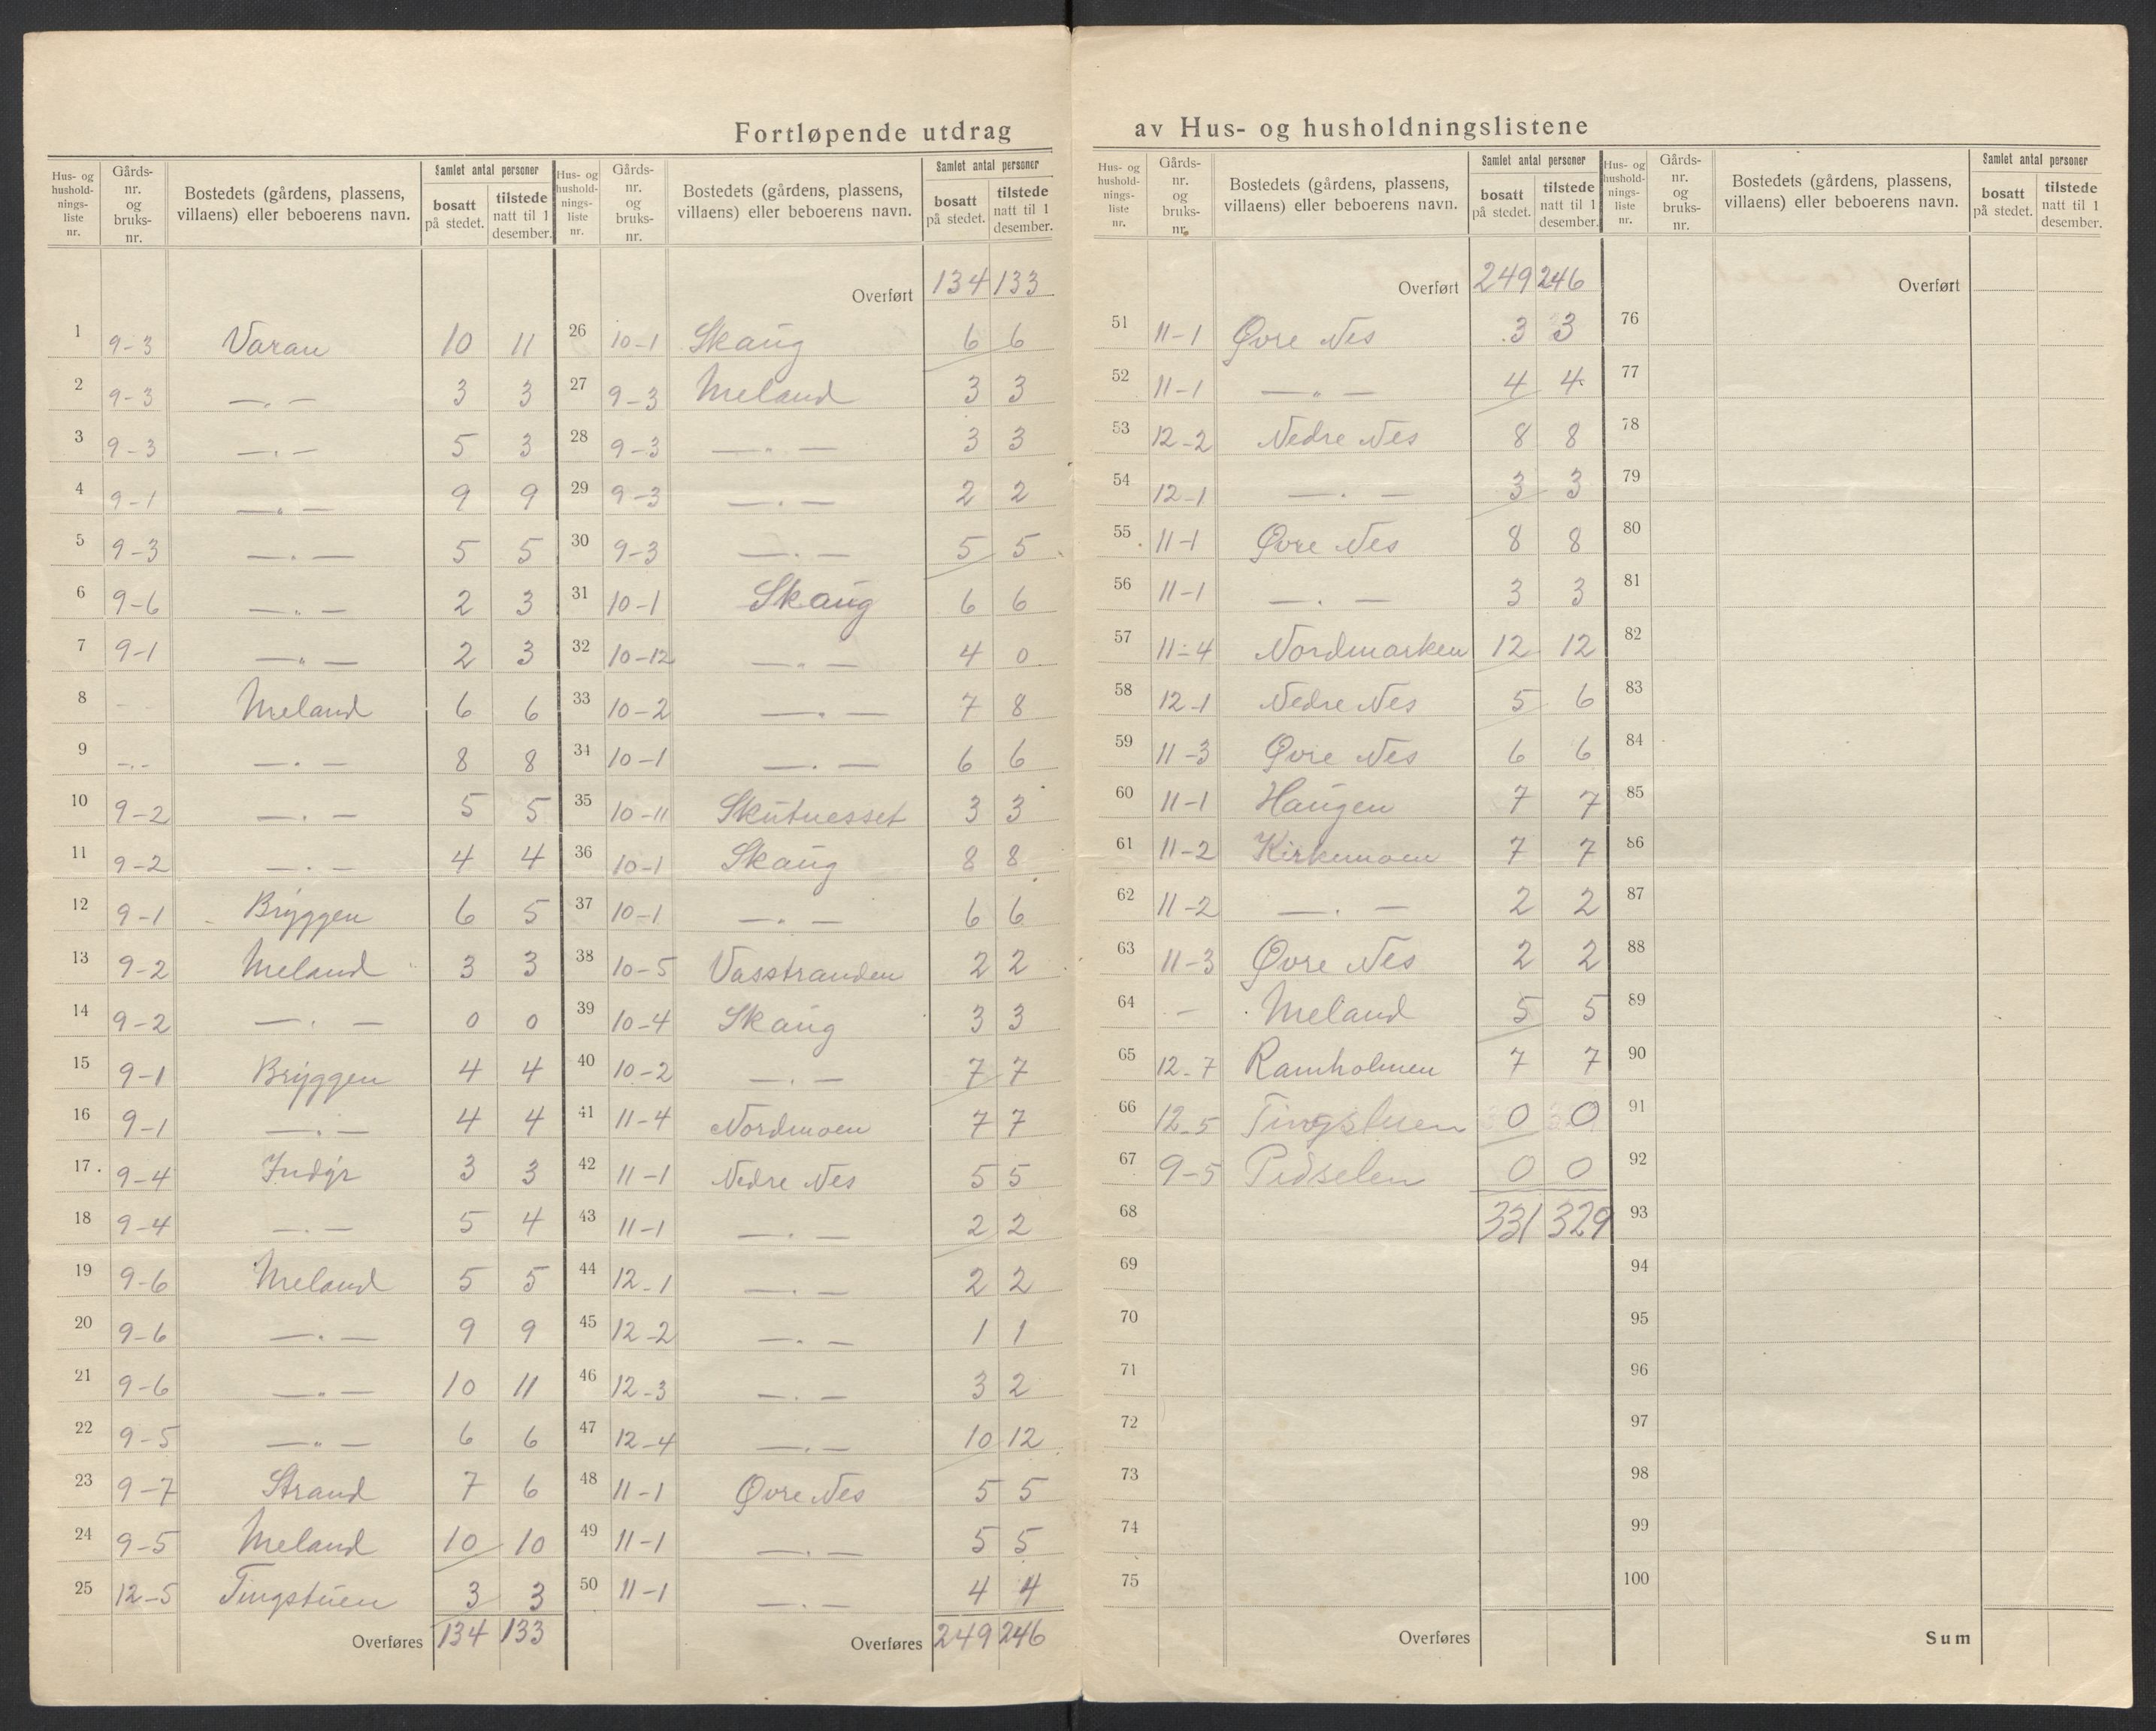 Fortløpende utdrag av Hus- og husholdningslistene
Hus- og hushold-nings-liste nr. Gårds-nr. og bruks-nr. Bostedets (gårdens, plassens, villaens) eller beboerens navn. Samlet antal personer bosatt på stedet. tilstede natt til 1 desember.
1 9-3 Varan 10 11
2 9-3 —„— 3 3
3 9-3 —„— 5 3
4 9-1 —„— 9 9
5 9-3 —„— 5 5
6 9-6 —„— 2 3
7 9-1 —„— 2 3
8 - - Meland 6 6
9 -„- —„— 8 8
10 9-2 —„— 5 5
11 9-2 —„— 4 4
12 9-1 Bryggen 6 5
13 9-2 Meland 3 3
14 9-2 —„— 0 0
15 9-1 Bryggen 4 4
16 9-1 —„— 4 4
17 9-4 Indyr 3 3
18 9-4 —„— 5 4
19 9-6 Meland 5 5
20 9-6 —„— 9 9
21 9-6 —„— 10 11
22 9-5 —„— 6 6
23 9-7 Strand 7 6
24 9-5 Meland 10 10
25 12-5 Tingstuen 3 3
Overføres 134 133
Hus- og hushold-nings-liste nr. Gårds-nr. og bruks-nr. Bostedets (gårdens, plassens, villaens) eller beboerens navn. Samlet antal personer bosatt på stedet. tilstede natt til 1 desember.
Overført 134 133
26 10-1 Skaug 6 6
27 9-3 Meland 3 3
28 9-3 —„— 3 3
29 9-3 —„— 2 2
30 9-3 —„— 5 5
31 10-1 Skaug 6 6
32 10-12 —„— 4 0
33 10-2 —„— 7 8
34 10-1 —„— 6 6
35 10-11 Skutnesset 3 3
36 10-1 Skaug 8 8
37 10-1 —„— 6 6
38 10-5 Vasstranden 2 2
39 10-4 Skaug 3 3
40 10-2 —„— 7 7
41 11-4 Nordmoen 7 7
42 11-1 Nedre Nes 5 5
43 11-1 —„— 2 2
44 12-1 —„— 2 2
45 12-2 —„— 1 1
46 12-3 —„— 3 2
47 12-4 —„— 10 12
48 11-1 Øvre Nes 5 5
49 11-1 —„— 5 5
50 11-1 —„— 4 4
Overføres 249 246
Hus- og hushold-nings-liste nr. Gårds-nr. og bruks-nr. Bostedets (gårdens, plassens, villaens) eller beboerens navn. Samlet antal personer bosatt på stedet. tilstede natt til 1 desember.
Overført 249 246
51 11-1 Øvre Nes 3 3
52 11-1 —„— 4 4
53 12-2 Nedre Nes 8 8
54 12-1 —„— 3 3
55 11-1 Øvre Nes 8 8
56 11-1 —„— 3 3
57 11-4 Nordmarken 12 12
58 12-1 Nedre Nes 5 6
59 11-3 Øvre Nes 6 6
60 11-1 Haugen 7 7
61 11-2 Kirkemoen 7 7
62 11-2 —„— 2 2
63 11-3 Øvre Nes 2 2
64 - Meland 5 5
65 12-7 Ramholmen 7 7
66 12-5 Tingstuen 0 0
67 9-5 Pidselen 0 0
68 331 329
69
70
71
72
73
74
75
Overføres
Hus- og hushold-nings-liste nr. Gårds-nr. og bruks-nr. Bostedets (gårdens, plassens, villaens) eller beboerens navn. Samlet antal personer bosatt på stedet. tilstede natt til 1 desember.
Overført
76
77
78
79
80
81
82
83
84
85
86
87
88
89
90
91
92
93
94
95
96
97
98
99
100
Sum